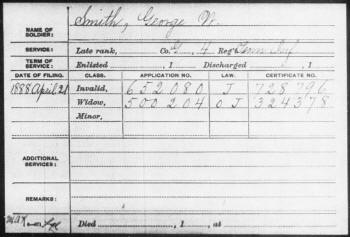 NAME OF SOLDIER: Smith, George W.
SERVICE: Late rank, Co. G, 4 Reg't Tenn Inf
TERM OF SERVICE: Enlisted , 1 Discharged , 1
DATE OF FILING. CLASS. APPLICATION NO. LAW. CERTIFICATE NO.
1888 April 21 Invalid, 652080 J 728796
Widow, 500204 O J 324378
Minor,
ADDITIONAL SERVICES:
REMARKS:
Died , 1 , at